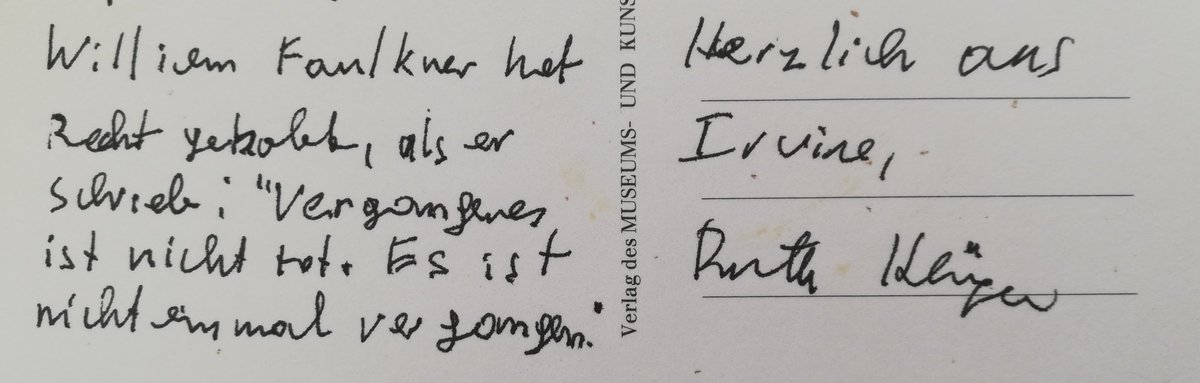 William Faulkner hat
Recht gehabt, als er
schrieb: "Vergangenes
ist nicht tot. Es ist
nicht einmal vergangen."
Verlag des MUSEUMS- UND KUNS
Herzlich aus
Irvine,
Ruth Klüger